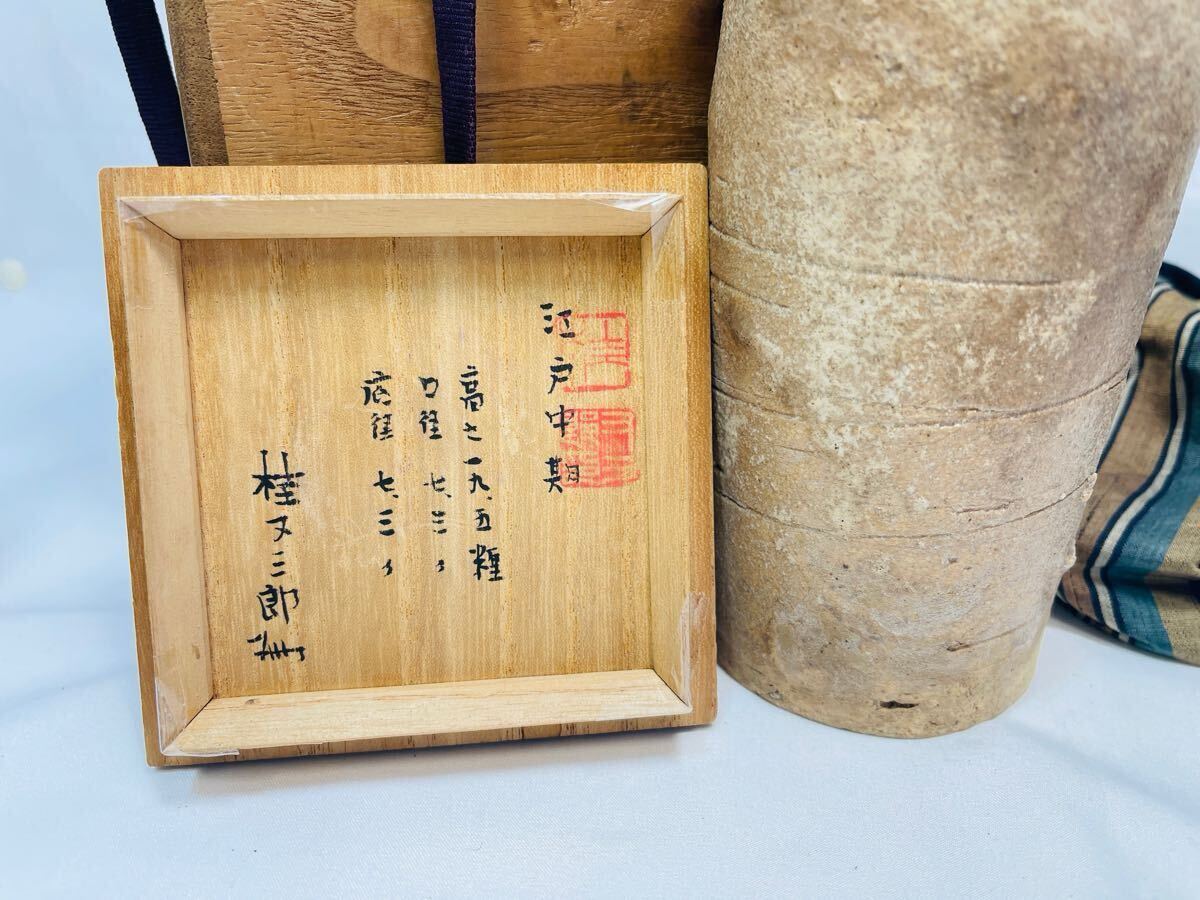 江戸中期
高さ一九.五糎
口径 七.三〃
底径 七.三〃
桂又三郎